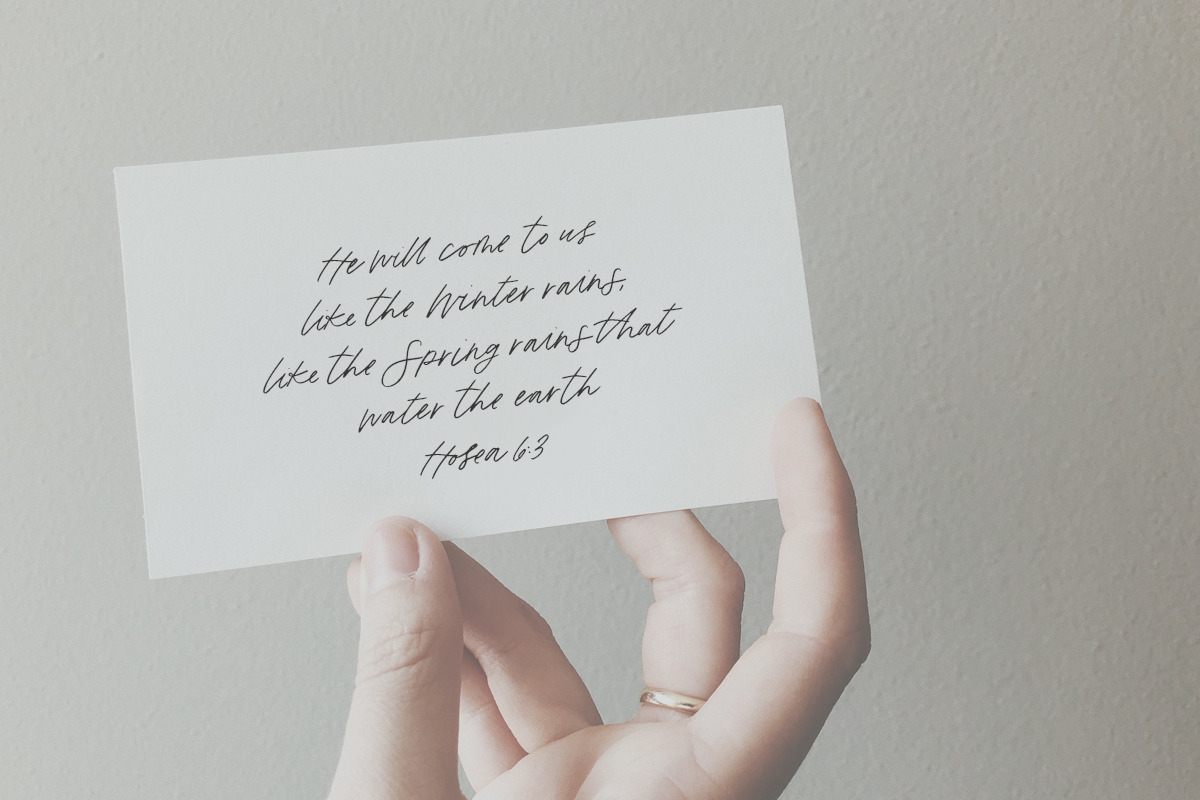 He will come to us
like the Winter rains,
like the Spring rains that
water the earth
Hosea 6:3